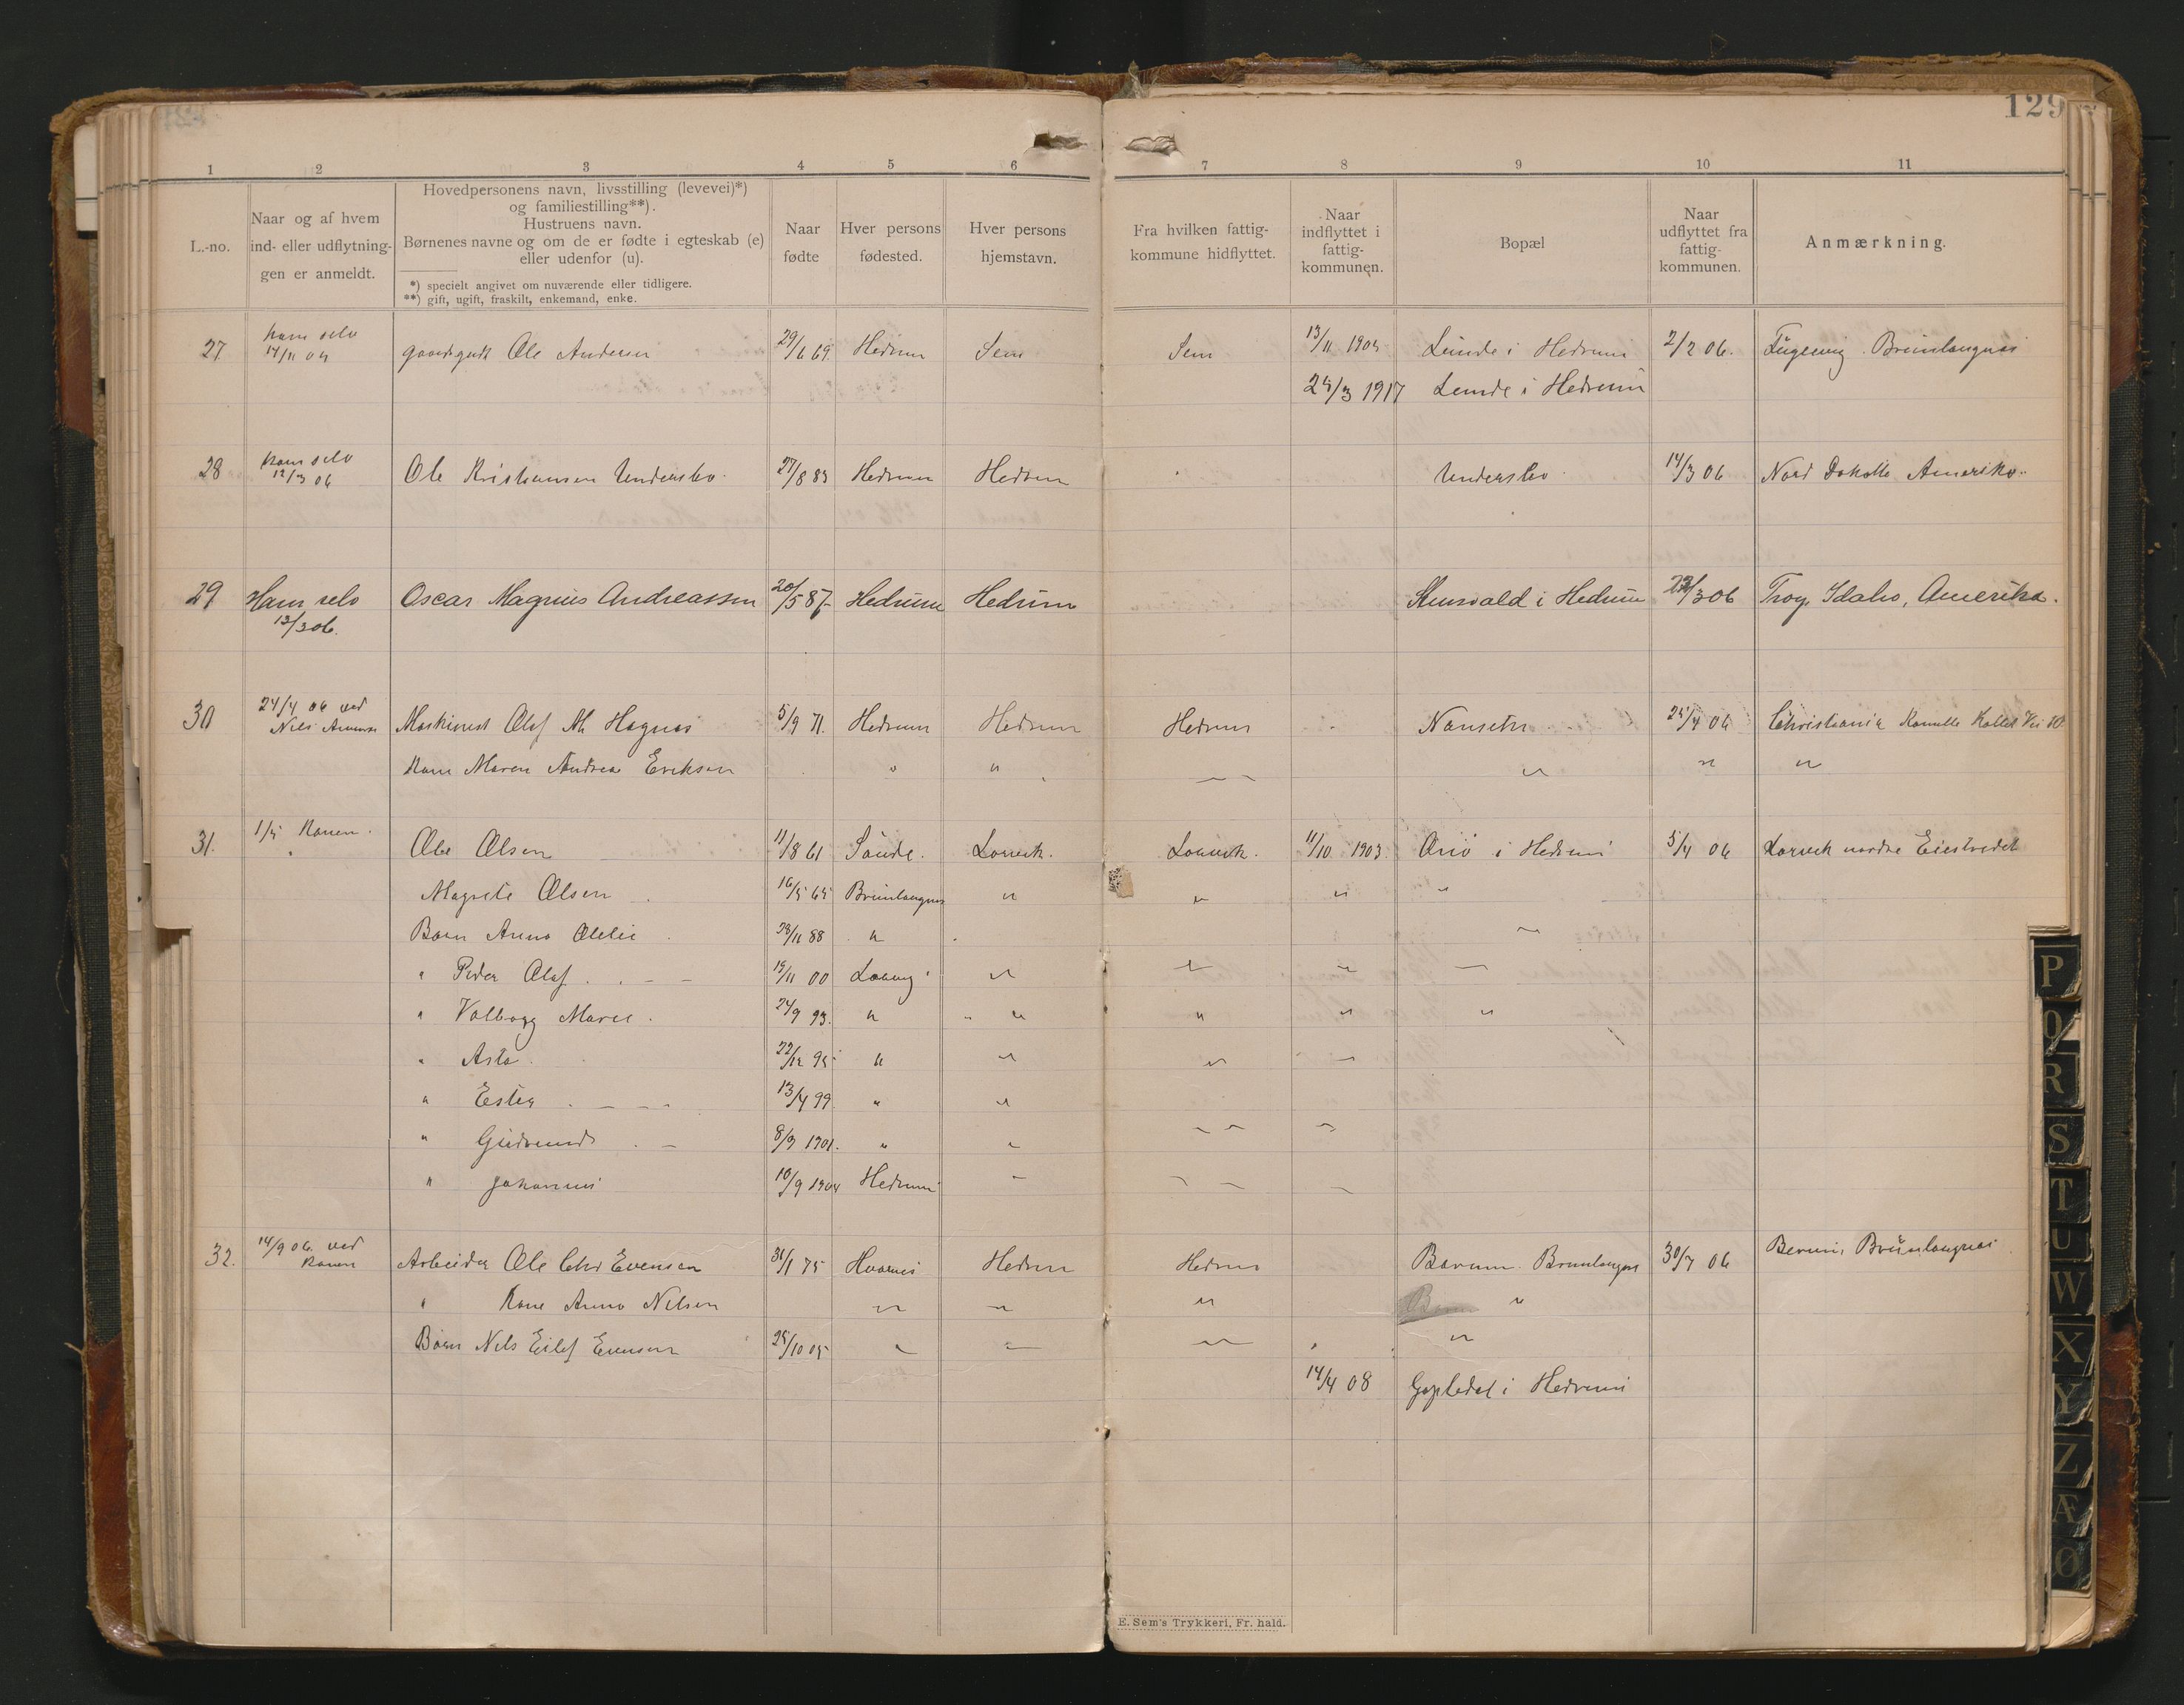 129
1 2 3 4 5 6 7 8 9 10 11
L.-no.
Naar og af hvem
ind- eller udflytnin-
gen er anmeldt.
Hovedpersonens navn, livsstilling (levevei)*)
og familiestilling**).
Hustruens navn.
Børnenes navne og om de er fødte i egteskab (e)
eller udenfor (u).
*) specielt angivet om nuværende eller tidligere.
**) gift, ugift, fraskilt, enkemand, enke.
Naar
fødte
Hver persons
fødested.
Hver persons
hjemstavn.
Fra hvilken fattig-
kommune hidflyttet.
Naar
indflyttet i
fattig-
kommunen.
Bopæl
Naar
udflyttet fra
fattig-
kommunen.
Anmærkning.
27 ham selv 14/11 Ole Andersen 29/6 69. Hedrum Sem Sem 13/11 Lunde i Hedrum 2/2 06. Brunlangnæs
1917 Lunde i Hedrum
28 ham selv 12/3 06 Ole Kristiansen Undersbo 27/8 83 Hedrum Hedrum Undersbo 14/3 06 Nord Dakotta Amerika
29 Ham selv 13/3 06. Oscar Magnus Andreassen 20/5 87 Hedrum Hedrum i Hedrum /3 06 Troy, Idaho, Amerika.
30 24/4 06 ved Nils Maskinist Olaf M Hagnæs 5/9 71. Hedrum Hedrum Hedrum Nanseth 25/4 06 Christiania Kollet Vei 10
Kone Maren Andrea Eriksen " " " " " "
31. 1/5 Konen. Ole Olsen 11/8 61 Sande. Larvik. Larvik. 11/10 1903 i Hedrum 5/4 06 Larvik nordre
Magrete Olsen 16/5 65 Brunlangnæs " " " "
Børn Anna 28/11 88 " "
" Peder Olaf 19/11 00 " " " "
" Valborg Marie 24/9 93. " " " " "
" Asta 22/12 95 " " " "
" Ester 13/4 99 " "
" Gudrund 8/9 1901. " " " "
" Johannes 10/9 1904 Hedrum " " "
32. 14/9 06. ved Konen Arbeider Ole Chr Evensen 31/1 75 Hvarnes Hedrum Hedrum Brunlangnes 30/7 06 Brunlangnæs
" Kone Anna Nilsen " " " "
Børn Nils Eilef Evensen 25/10 05 " " " "
14/4 08 i Hedrum
E. Sem's Trykkeri, Fr. hald.
P
Q
R
S
T
U
W
X
Y
Z
Æ
Ø